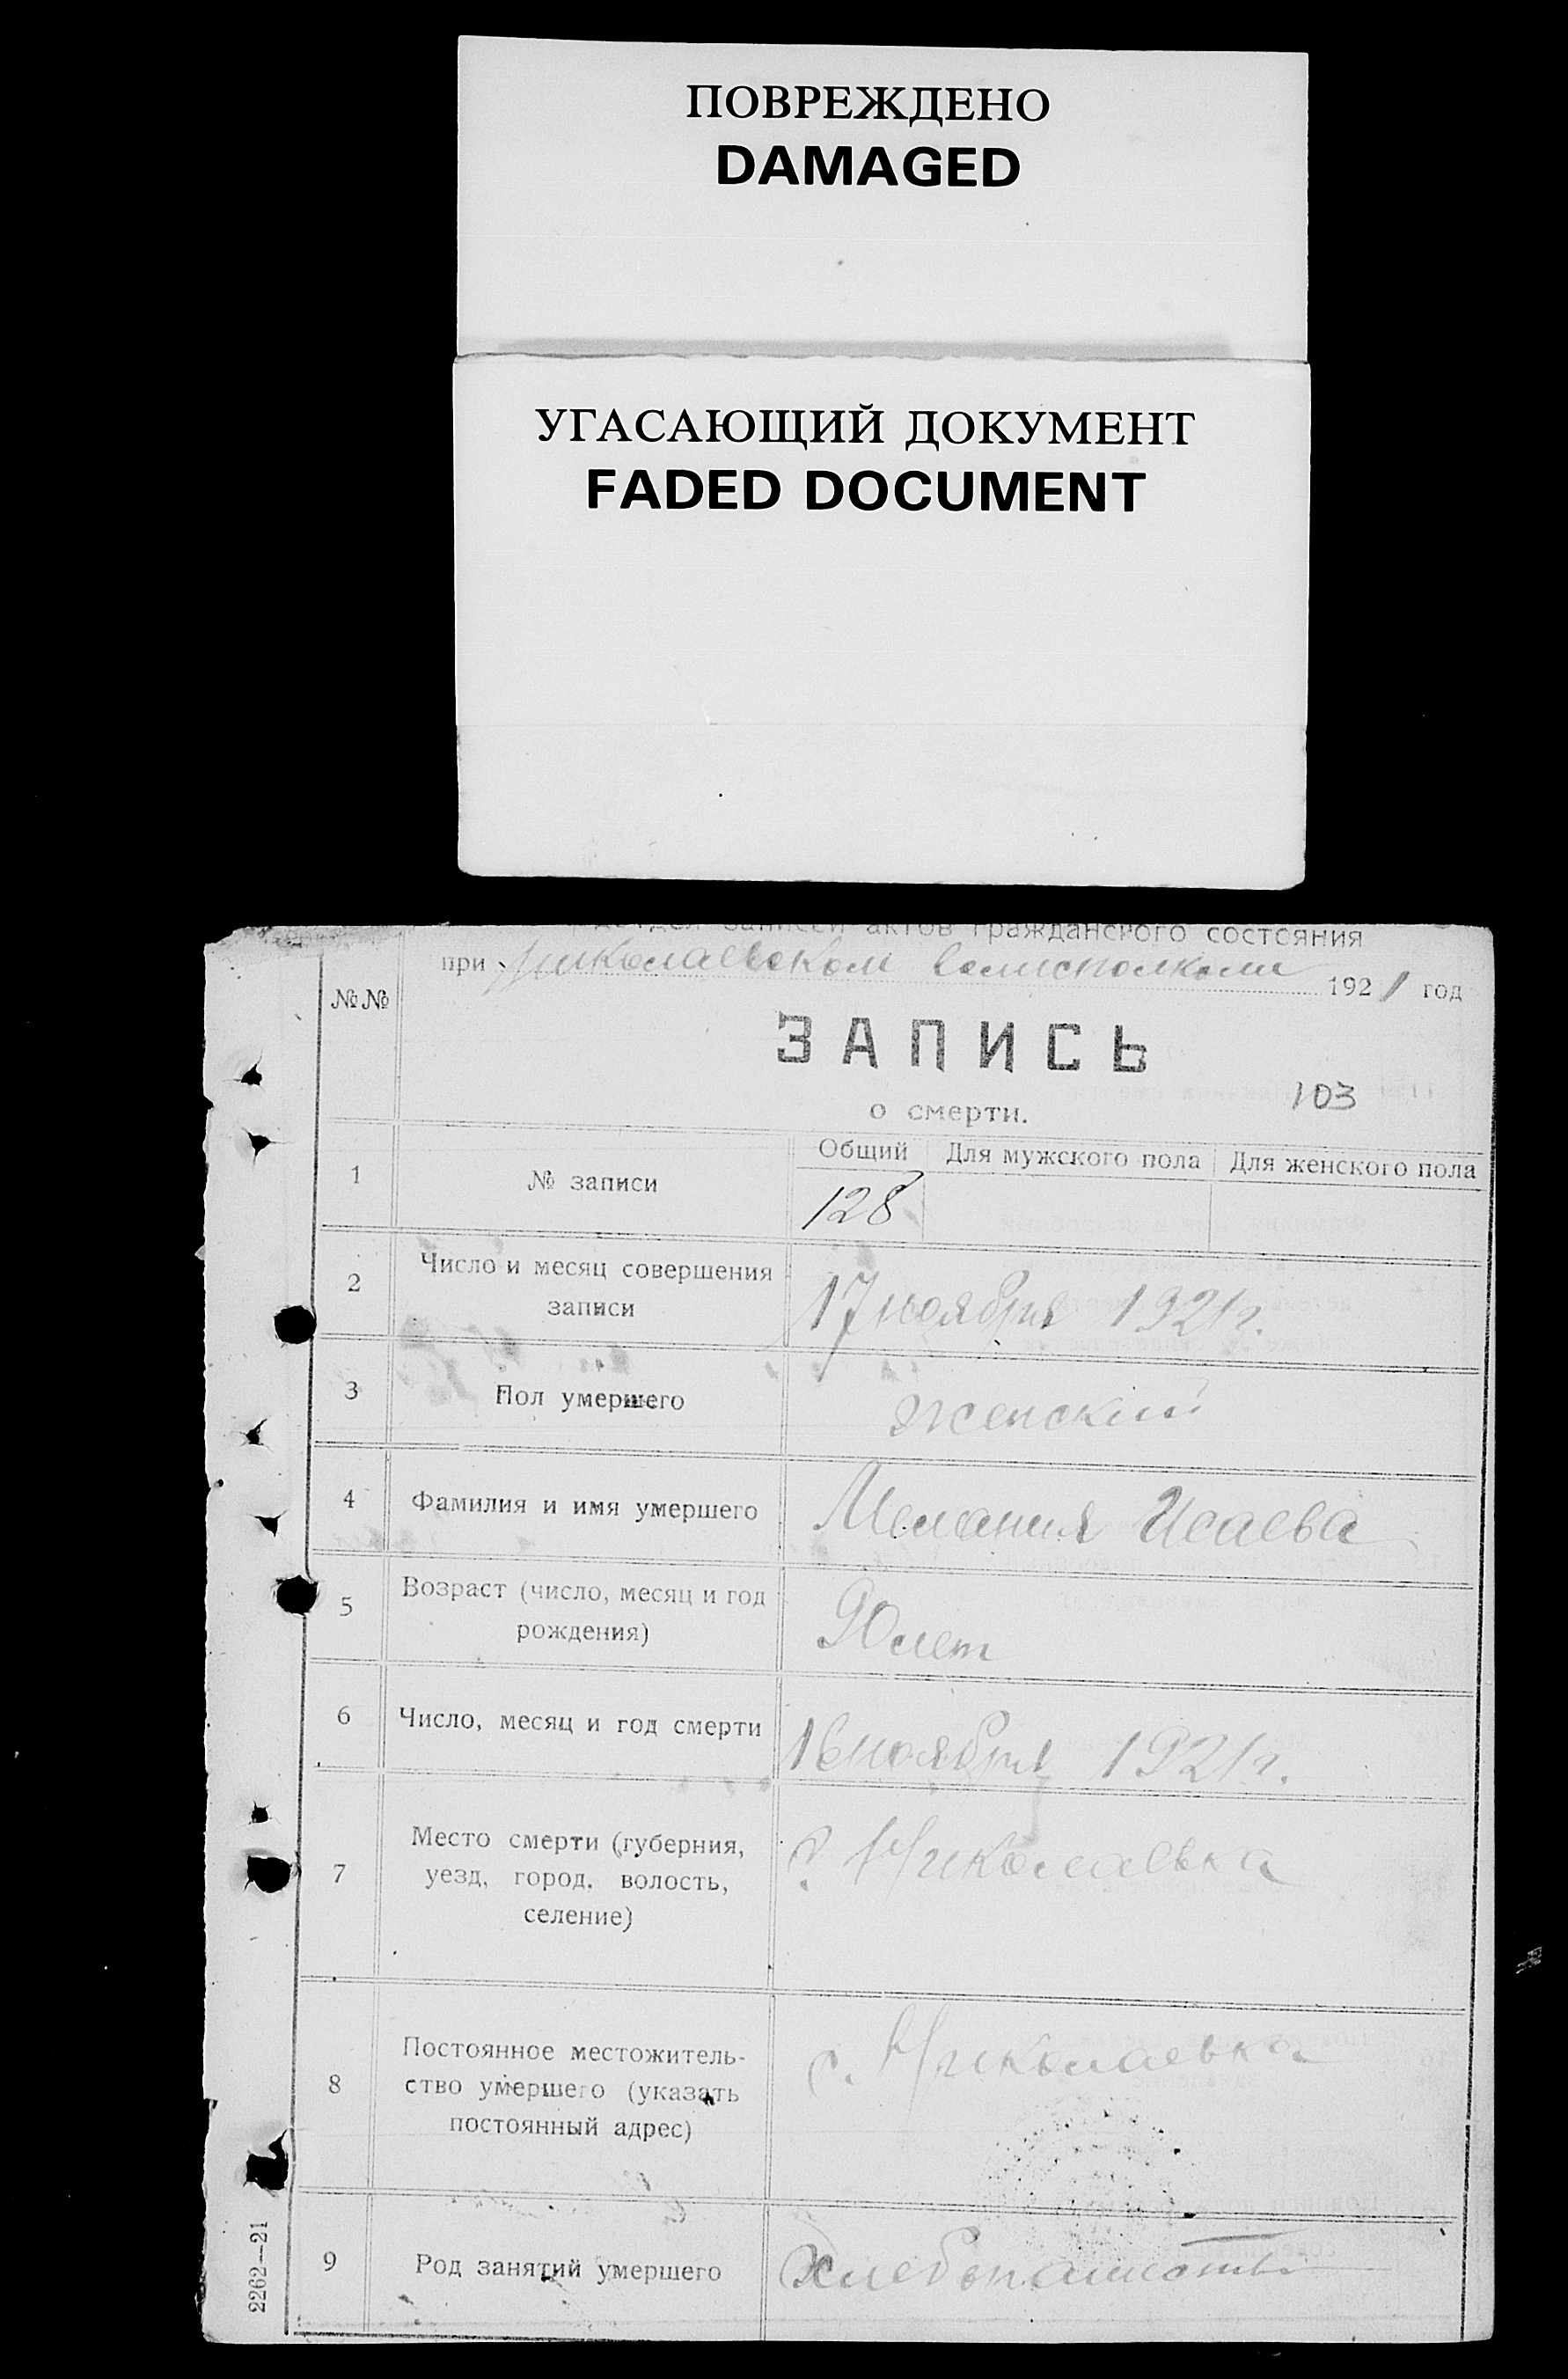 ПОВРЕЖДЕНО
DAMAGED
УГАСАЮЩИЙ ДОКУМЕНТ
FADED DOCUMENT
записей актов гражданского состояния
при Николаевском волисполкоме 1921 год
№№
ЗАПИСЬ
103
о смерти.
Общий Для мужского пола Для женского пола
1 № записи
128
2 Число и месяц совершения
записи
17 ноября 1921 г.
3 Пол умершего женский
4 Фамилия и имя умершего Мелания Исаева
5 Возраст (число, месяц и год
рождения)
90 лет
6 Число, месяц и год смерти 16 ноября 1921 г.
7 Место смерти (губерния,
уезд, город, волость,
селение)
с. Николаевка
8 Постоянное местожитель-
ство умершего (указать
постоянный адрес)
с. Николаевка
9 Род занятий умершего Хлебопашество
2262—21